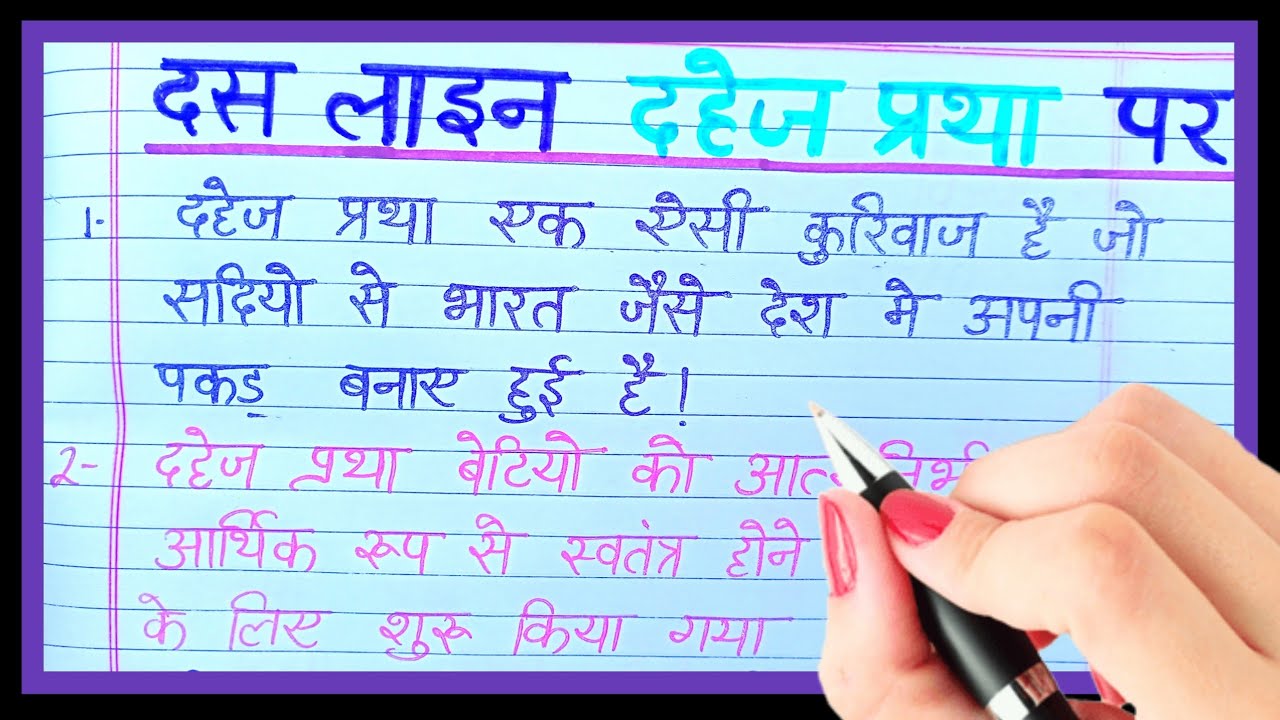 दस लाइन दहेज प्रथा पर
1- दहेज प्रथा एक ऐसी कुरिवाज है जो
सदियो से भारत जैसे देश मे अपनी
पकड़ बनाए हुई है!
2- दहेज प्रथा बेटियो को
आर्थिक रूप से स्वतंत्र होने
के लिए शुरू किया गया